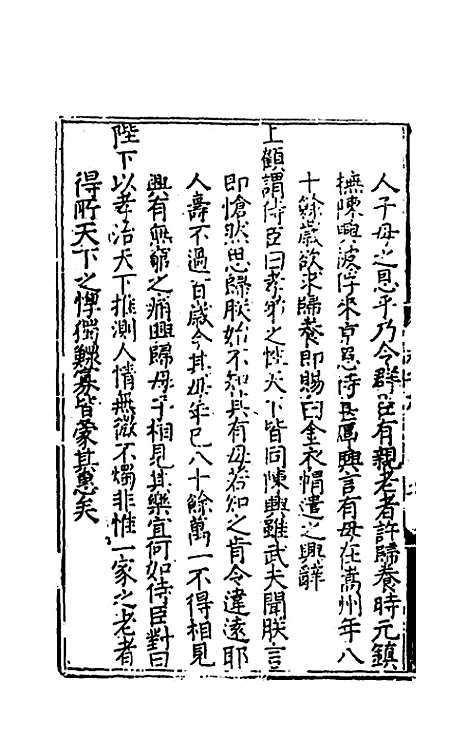 人子母之恩乎乃令群臣有親老者許歸養時元鎮
撫陳興被俘來京恩待甚厚興言有母在嵩州年八
十餘歲欲求歸養即賜白金衣帽遣之興辭
上顧謂侍臣曰孝弟之性天下皆同陳興雖武夫聞朕言
即愴然思歸朕始不知其有母若知之肯令違遠耶
人壽不過百歲今其母年已八十餘萬一不得相見
興有無窮之痛興歸母子相見其樂宜何如侍臣對曰
陛下以孝治天下推測人情無微不燭非惟一家之老者
得所天下之惸獨鰥寡皆蒙其惠矣